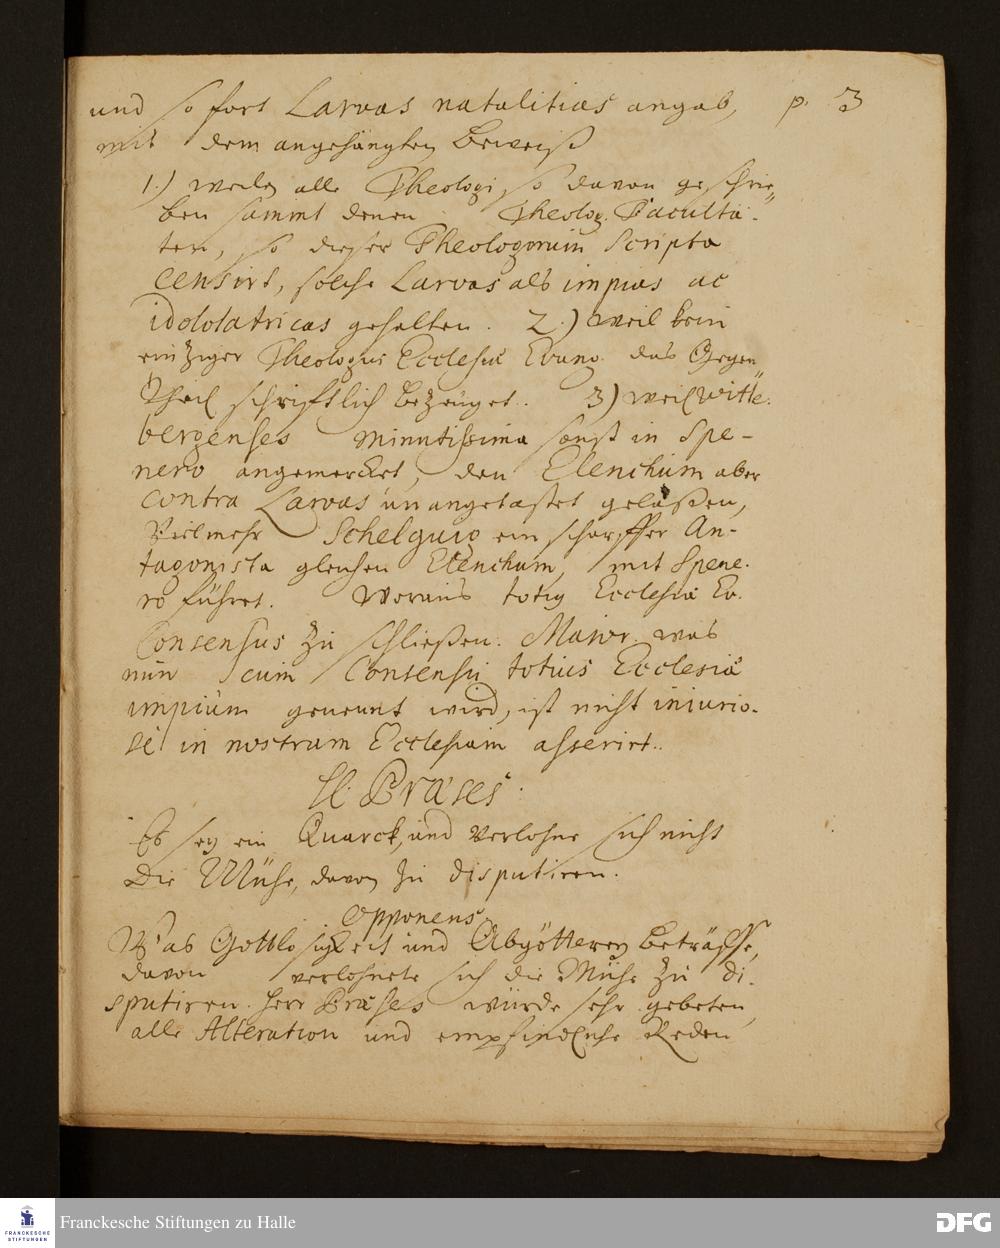 und so fort Larvas natalitias angab, p. 3
mit dem angehängten Beweiß
1.) weilen alle Theologi, so davon geschrie„
ben sammt denen Theolog. Facultä-
ten, so dieser Theologorum Scripta
censirt, solche Larvas als impias ac
idololatricas gehalten. 2.) Weil kein
einziger Theologus Ecclesiæ Evang. das Gegen„
Theil schrifftlich bezeuget.. 3) weil Witte.
bergenses minutissima sonst in Spe-
nero angemercket, den Elenchum aber
contra Larvas unangetastet gelaßen,
Vielmehr Schelguig ein scharffer An-
tagonista gleichen Elenchum, mit Spene.
ro führet. Woraus totig Ecclesiæ Ev.
Consensus zu schließen. Maior. was
nun cum Consensu totius Ecclesiæ
impium genennt wird, ist nicht iniurio-
se in nostram Ecclesiam asserirt..
H. Præses.
Es sey ein Quarck, und verlohne sich nicht
Die Mühe, davon zu disputiren.
Opponens
Was Gottlosigkeit und Abgötterey beträffe,
davon verlohnete sich die Mühe zu di-
sputiren. Herr Præses würde sehr gebeten,
alle Alteration und empfindliche Reden
Franckesche Stiftungen zu Halle
FRANCKESCHE
STIFTUNGEN
DFG